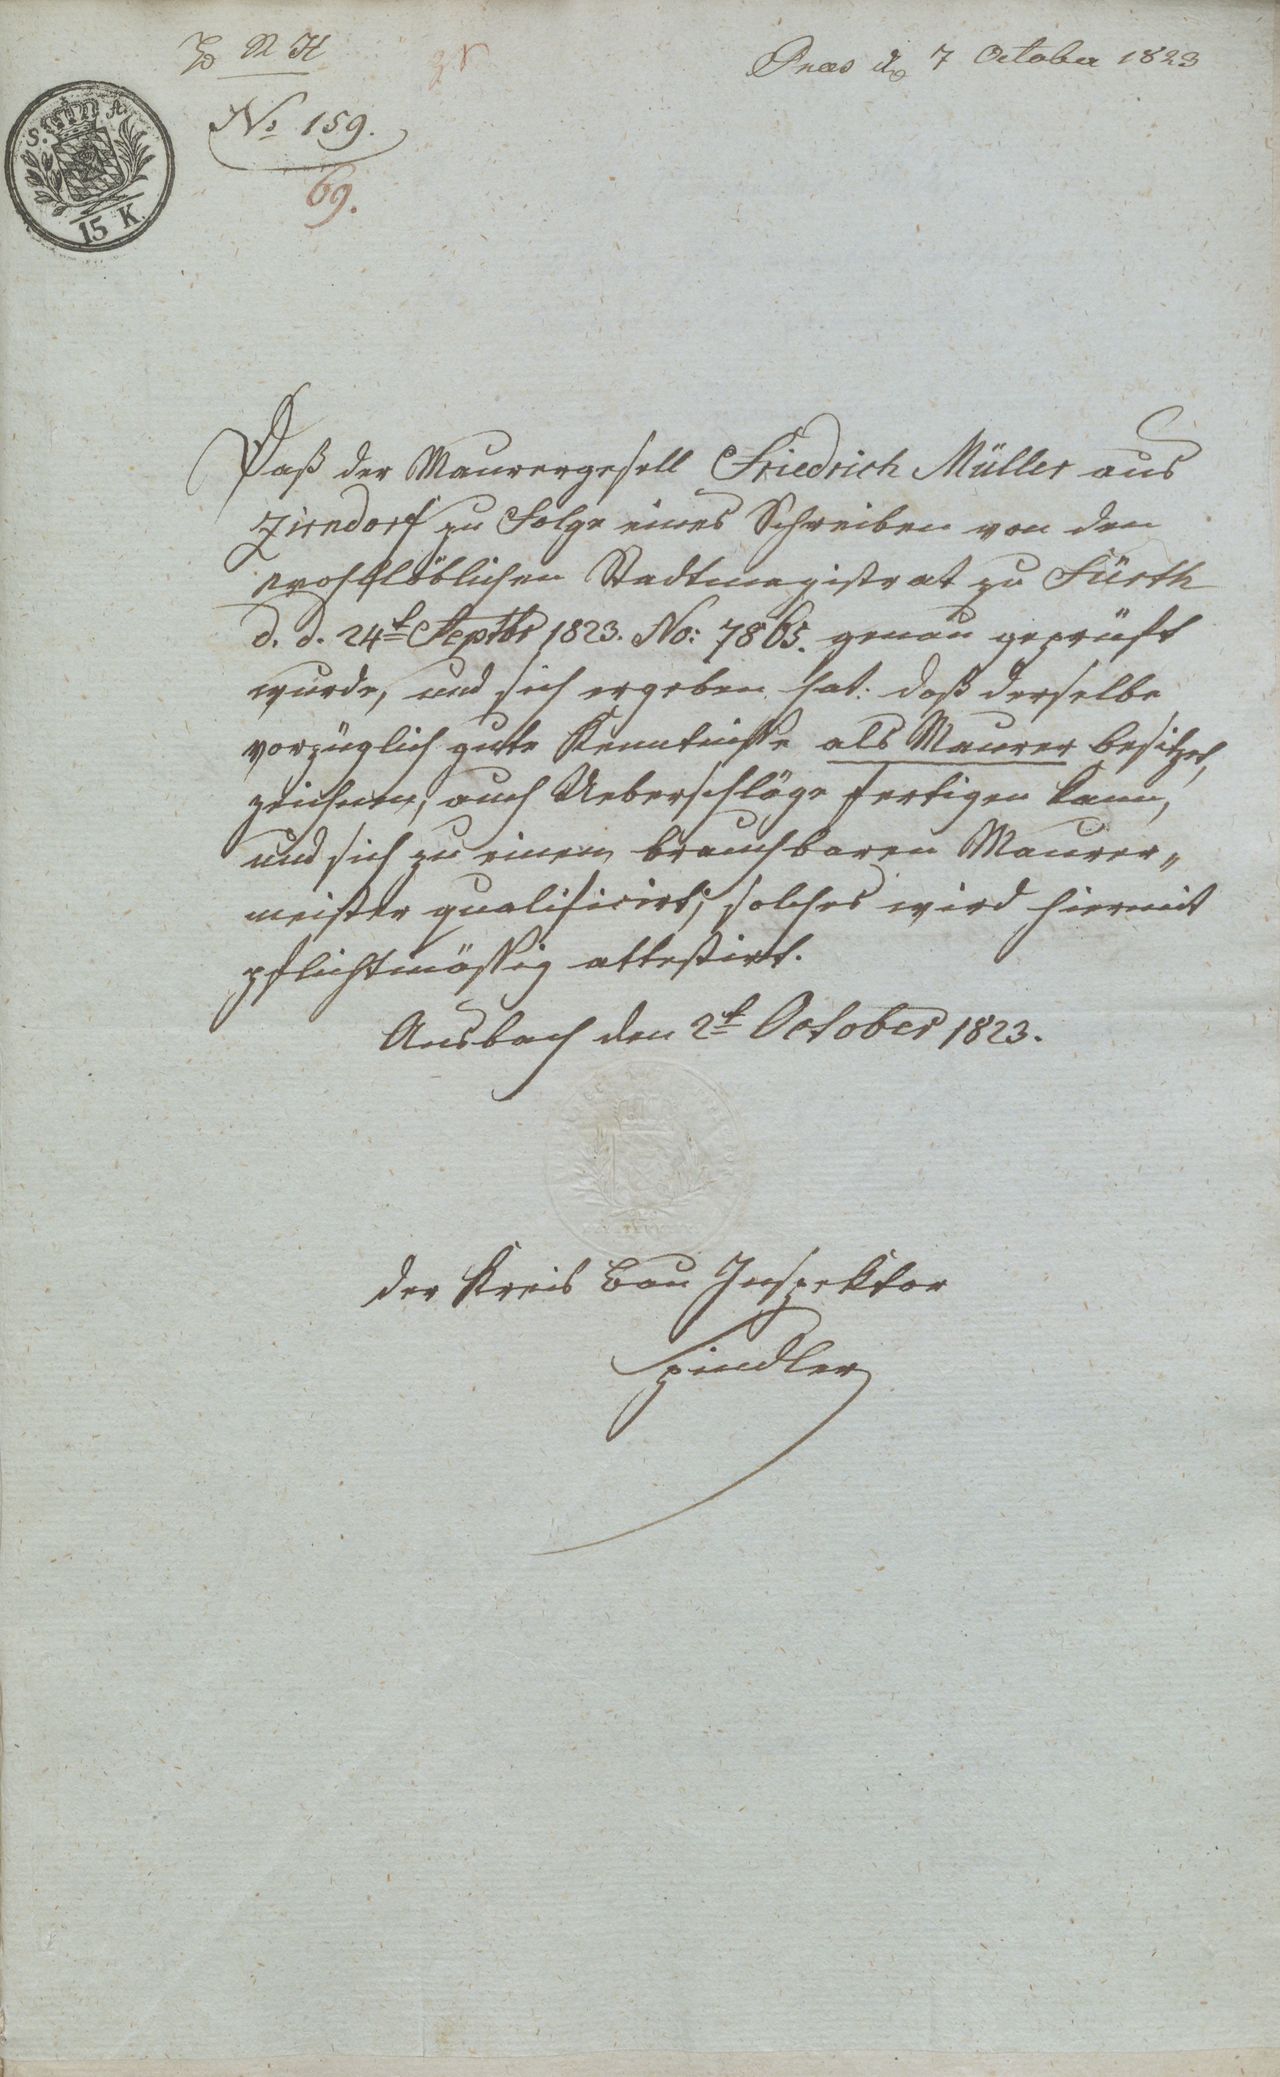 N H
Praes d. 7 October 1823
S. A.
15 K
No 159.
69.
Daß der Maurergesell Friedrich Müller aus
Zirndorf zu Folge eines Schreiben von den
wohllöblichen Stadtmagistrat zu Fürth
d. d. 24t Septbr 1823. No: 7865. genau geprüft
wurde, und sich ergeben hat: daß derselbe
vorzüglich gute Kenntniße als Maurer besitzet,
zeichnen, auch Ueberschläge fertigen kann,
und sich zu einem brauchbaren Maurer„
meister qualificirt; solches wird hiermit
pflichtmäßig attestirt.
Ansbach den 2t October 1823.
der Kreis Bau Inspektor
Spindler